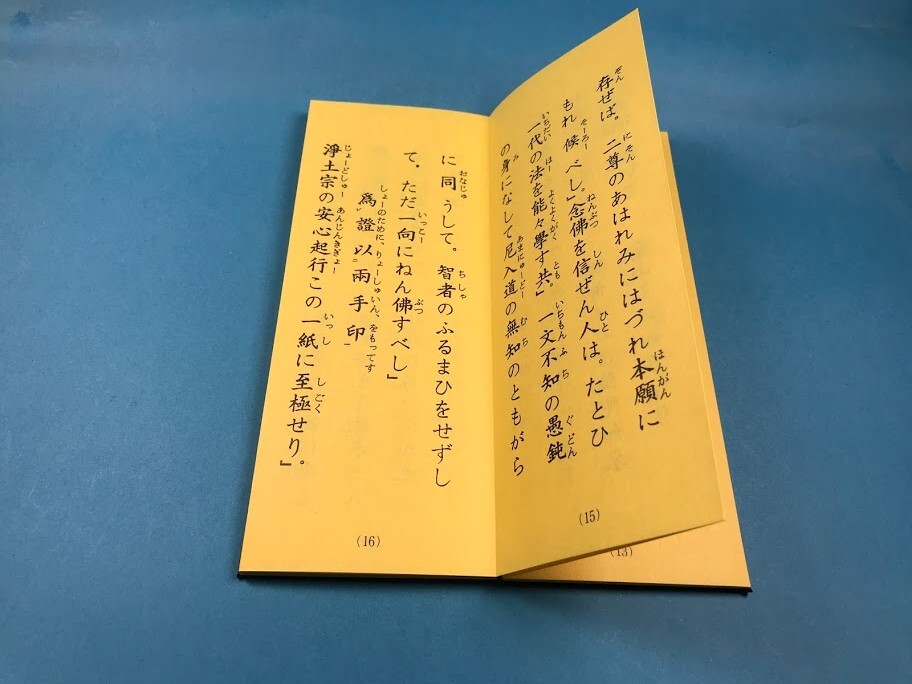 存ぜば。二尊のあはれみにはづれ本願に
もれ候べし」念佛を信ぜん人は。たとひ
一代の法を能々學す共。」一文不知の愚鈍
の身になして尼入道の無知のともがら
(15)
に同うして。智者のふるまひをせずし
て。ただ一向にねん佛すべし」
爲證以兩手印
淨土宗の安心起行この一紙に至極せり。」
(16)
(13)